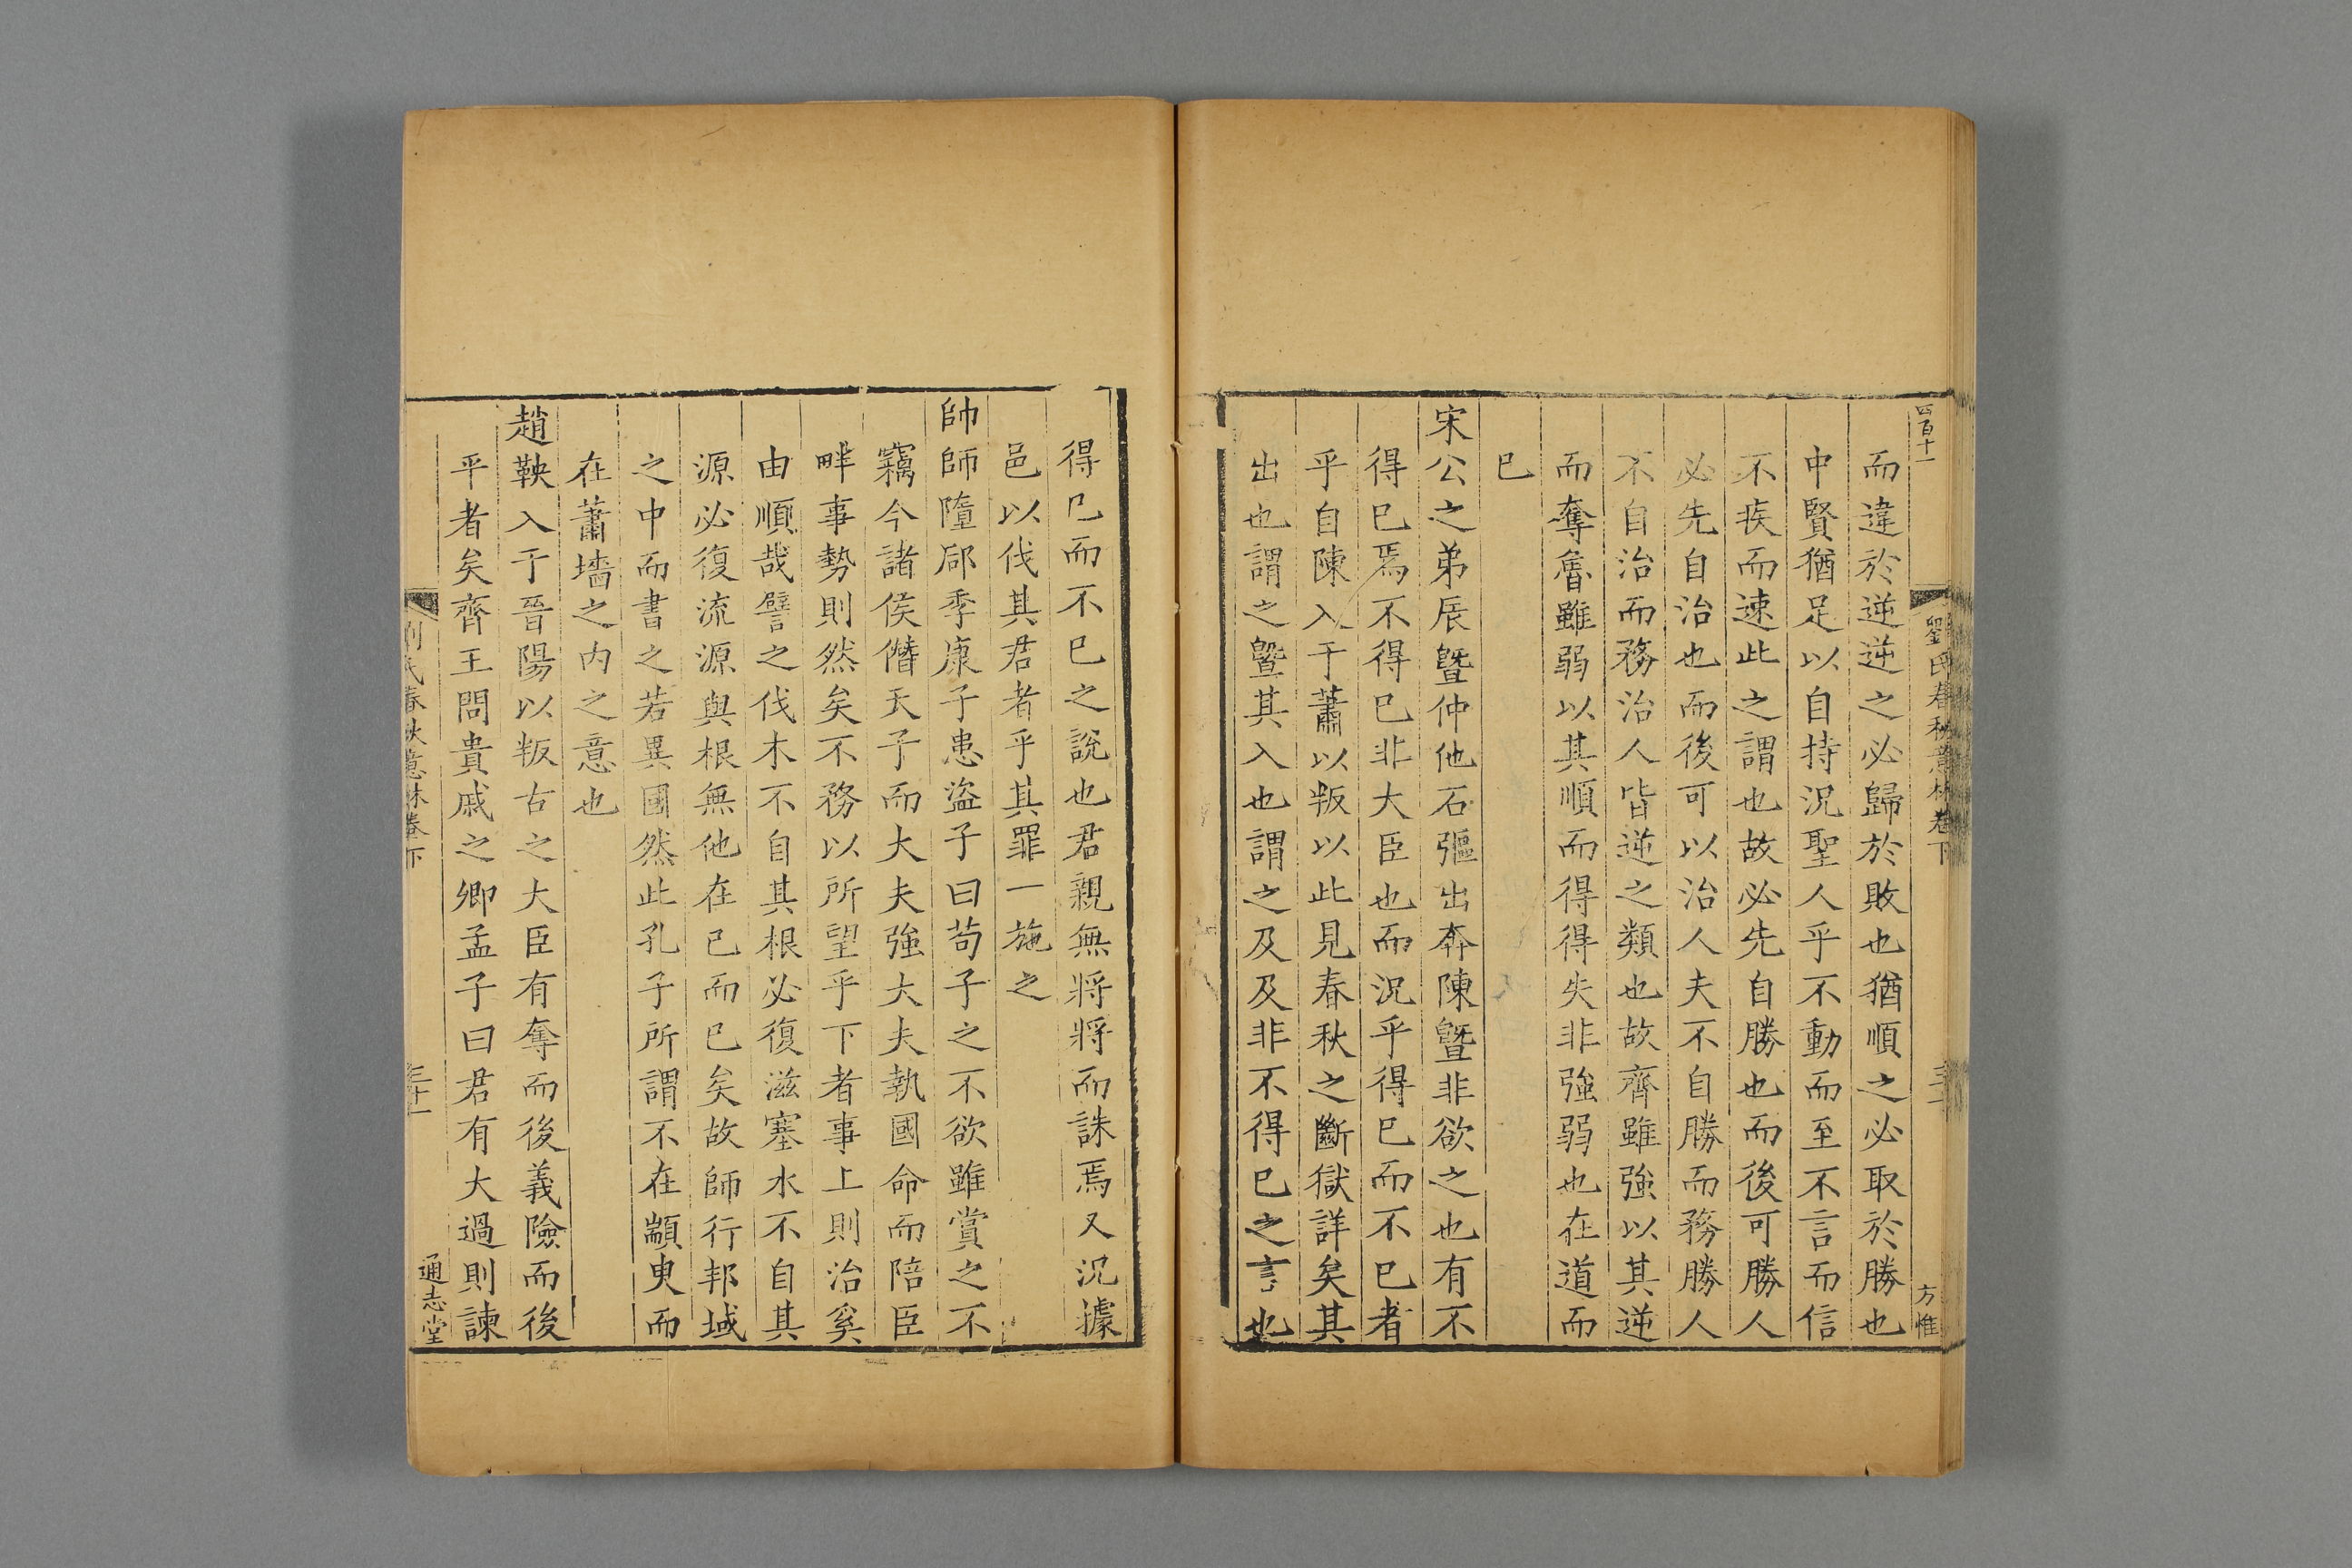 四百十一
劉氏春秋意林卷下
方惟
而違於逆逆之必歸於敗也猶順之必取於勝也
中賢猶足以自持況聖人乎不動而至不言而信
不疾而速此之謂也故必先自勝也而後可勝人
必先自治也而後可以治人夫不自勝而務勝人
不自治而務治人皆逆之類也故齊雖強以其逆
而奪魯雖弱以其順而得得失非強弱也在道而
已
宋公之弟辰曁仲他石彄出奔陳曁非欲之也有不
得已焉不得已非大臣也而況乎得已而不已者
乎自陳入于蕭以叛以此見春秋之斷獄詳矣其
出也謂之曁其入也謂之及及非不得已之言也
得已而不已之說也君親無將將而誅焉又況據
邑以伐其君者乎其罪一施之
帥師隳郈季康子患盜子曰苟子之不欲雖賞之不
竊今諸侯僭天子而大夫強大夫執國命而陪臣
畔事勢則然矣不務以所望乎下者事上則治奚
由順哉譬之伐木不自其根必復滋塞水不自其
源必復流源與根無他在已而已矣故師行邦域
之中而書之若異國然此孔子所謂不在顓臾而
在蕭墻之內之意也
趙鞅入于晉陽以叛古之大臣有奪而後義險而後
平者矣齊王問貴戚之卿孟子曰君有大過則諫
劉氏春秋意林卷下
三十一
通志堂